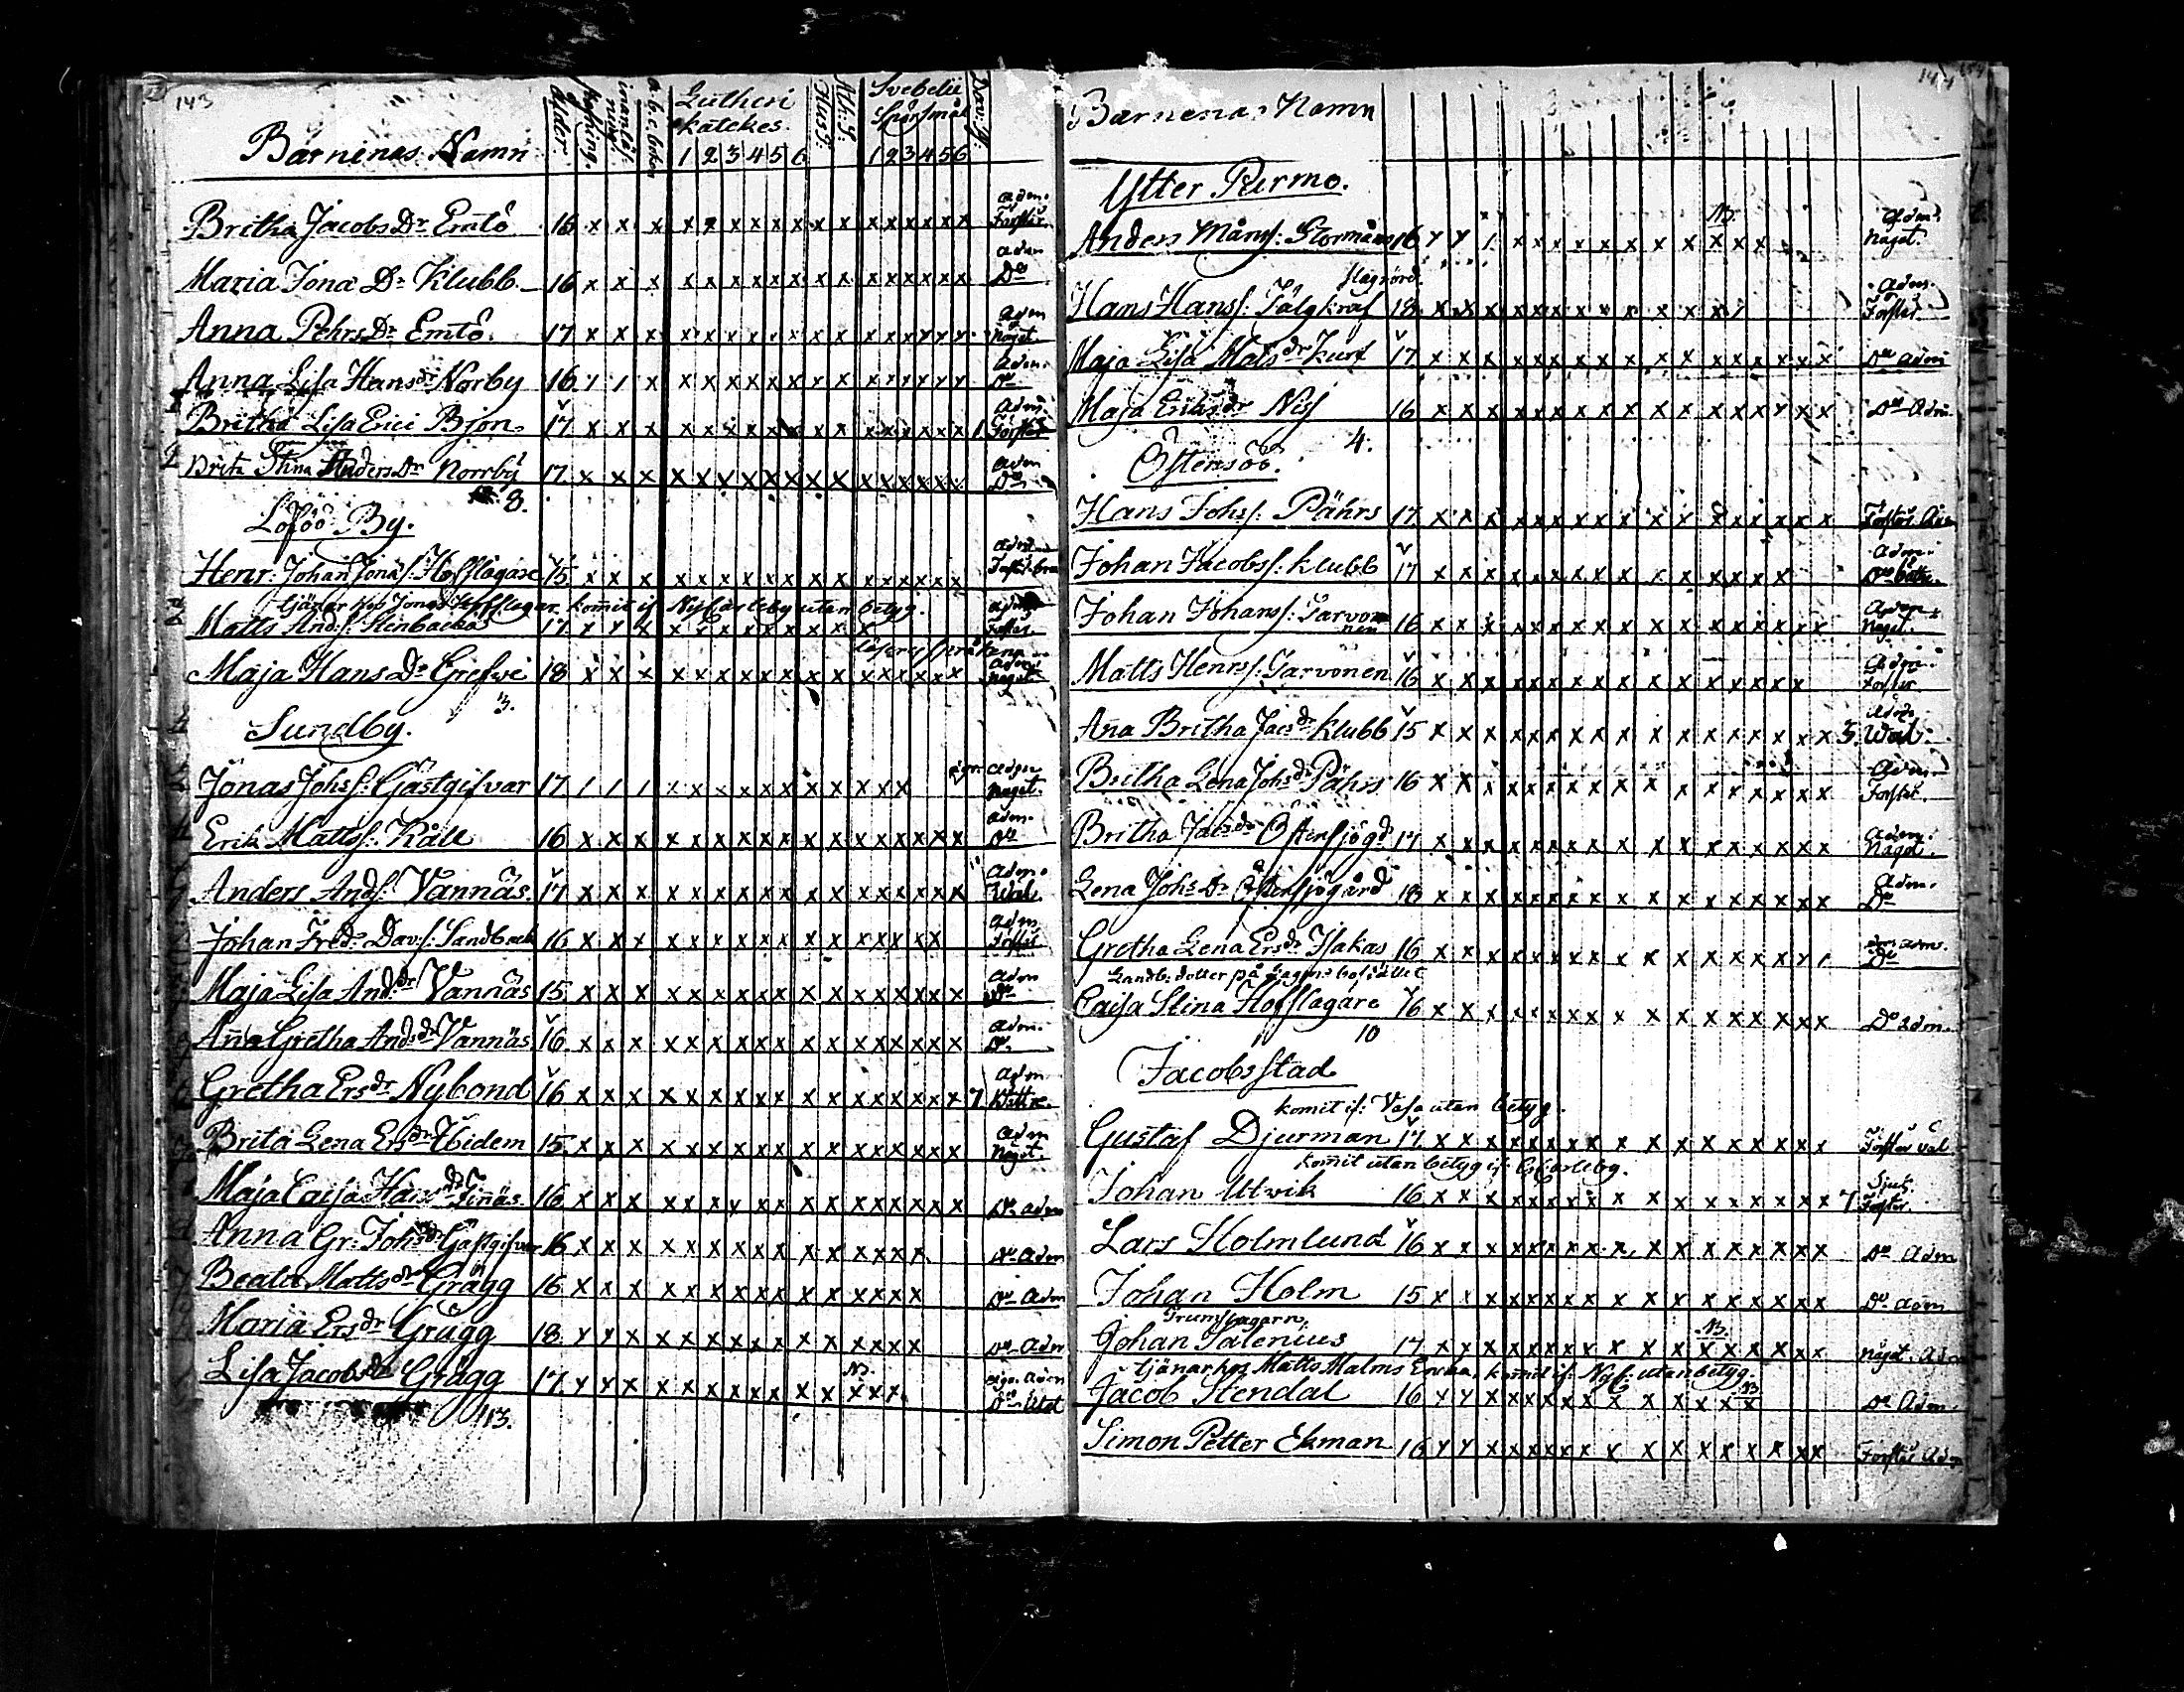 143
Barnenas Namn Ålder. a.b.c. boken Lutheri katekes. 1 2 3 4 5 6 Hust. Svebelii Spörsmål 1 2 3 4 5 6 Dav: 
Adm.
Britha Jacobs Dr Emtö 16 x x x x x x x x x x x x x x x x x Förstår
Adm
Maria Jona Dr Klubb 16 x x x x x x x x x x x x x x x x x Do
Adm
Anna Pehrs Dr Emtö. 17 x x x x x x x x x x x x x x x x x Något.
Adm.
Anna Lisa Hans dr Norby 16 / / x x x x x x x x x x x x x x x Do
Adm.
Britha Lisa Erici Bjon 17 x x x x x x x x x x x x x x x x x 1 Förstår
Adm
Brita Stina Anders Dr Norrby 17 x x x x x x x x x x x x x x x x x Do
8.
Löföö By.
Adm
Henr: Johan Jonæs: Hofslagare 15 x x x x x x x x x x x x x x x x x
tjänar hos Jonas Hofslagar komit if: Nycarleby utan betyg.
Matts Ands: Stenbacka 17 x x x x x x x x x x x x Förstår
Adm
Maja Hans Dr Grefve 18 x x x x x x x x x x x x x x x x x Något
3.
Sundby.
Adm
Jonas Johs: Gästgifvar 17 / / / x x x x x x x x x x x Något.
Adm.
Erik Mattss: Kåll 16 x x x x x x x x x x x x x x x x x Do
Adm.
Anders Ands: Vannäs. 17 x x x x x x x x x x x x x x x x x Wäl
Adm
Johan Fredr Davs: Sandback 16 x x x x x x x x x x x x x x x x Förstår
Adm
Maja Lisa And: dr Vannäs 15 x x x x x x x x x x x x x x x x x Do
Adm.
Anna Gretha And: dr Vannäs 16 x x x x x x x x x x x x x x x x x Do
Adm
Gretha Ers dr Nybond 16 x x x x x x x x x x x x x x x x x 7
Adm
Brita Lena Ers dr Widem 15 x x x x x x x x x x x x x x x x x Något
Maja Caisa Hans dr Finäs 16 x x x x x x x x x x x x x x x x x Do Adm
Anna Gr: Johs dr Gästgifvar 16 x x x x x x x x x x x x x x x Do Adm
Beata Matts dr Grägg 16 x x x x x x x x x x x x x x x Do Adm
Maria Ers dr Grägg 18 x x x x x x x x x x x x x x x Do Adm
NB. Adm
Lisa Jacobs dr Grägg 17 x x x x x x x x x x x x x x Do
13.
144
Barnenas Namn
Ytter Purmo.
NB. Adm.
Anders Måns: Stormåns 16 x x / x x x x x x x x x x x x Något.
Adm.
Hans Hans: Tålgkraf 18 x x x x x x x x x x x x x Förstår
Maja Lisa Mats dr Kurf 17 x x x x x x x x x x x x x x x x x Do Adm
Maja Eriks dr Nis 16 x x x x x x x x x x x x x x x x x Do Adm.
4.
Östensöö.
Hans Johs: Pährs 17 x x x x x x x x x x x x x x x x x Förstår Adm
Adm.
Johan Jacobs: Klubb 17 x x x x x x x x x x x x x x x x
Adm.
Johan Johans: Tarvonen 16 x x x x x x x x x x x x x x x x x Något.
Adm.
Matts Henrs: Tarvonen 16 x x x x x x x x x x x x x x x x Förstår
Adm.
Anna Britha Jacs dr Klubb 15 x x x x x x x x x x x x x x x x x 3. Wäl
Adm.
Britha Lena Johs dr Pährs 16 x x x x x x x x x x x x x x x x x Förstår.
Adm.
Britha Jacs dr Östensjög: 17 x x x x x x x x x x x x x x x x x Något.
Adm.
Lena Johs Dr Östensjögård 18 x x x x x x x x x x x x x x x x x Do
Adm.
Gretha Lena Ers dr Isakas 16 x x x x x x x x x x x x x x x x Do
Caisa Stina Hofslagare 16 x x x x x x x x x x x x x x x x x Do Adm.
10
Jacobsstad
komit if: Vasa utan betyg.
Gustaf Djurman 17 x x x x x x x x x x x x x x x x x Förstår väl
komit utan betyg if:
Johan Utvik 16 x x x x x x x x x x x x x x x x x 7 Förstår.
Lars Holmlund 16 x x x x x x x x x x x x x x x x x Do Adm
Johan Holm 15 x x x x x x x x x x x x x x x x x Do Adm
Trumslagaren NB.
Johan Salenius 17 x x x x x x x x x x x x x x x x x Något. Adm
tjänar hos Matts Malms Encka, komit if: Nyc: utan betyg.
NB
Jacob Stendal 16 x x x x x x x x x x x x x x Do Adm.
Simon Petter Ekman 16 x x x x x x x x x x x x x x x x x Förstår Adm